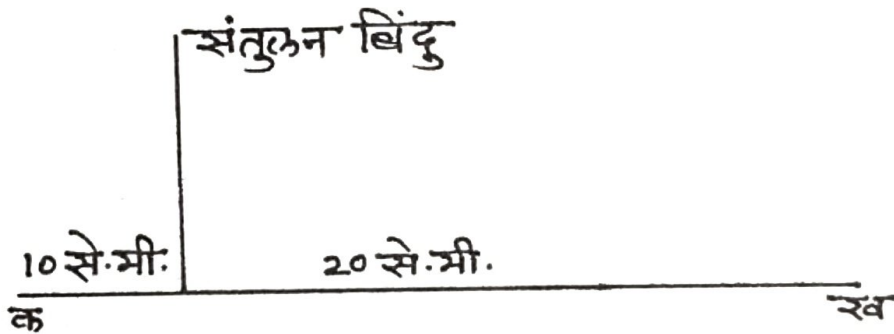 संतुलन बिंदु
10 से.मी. 20 से.मी.
क ख